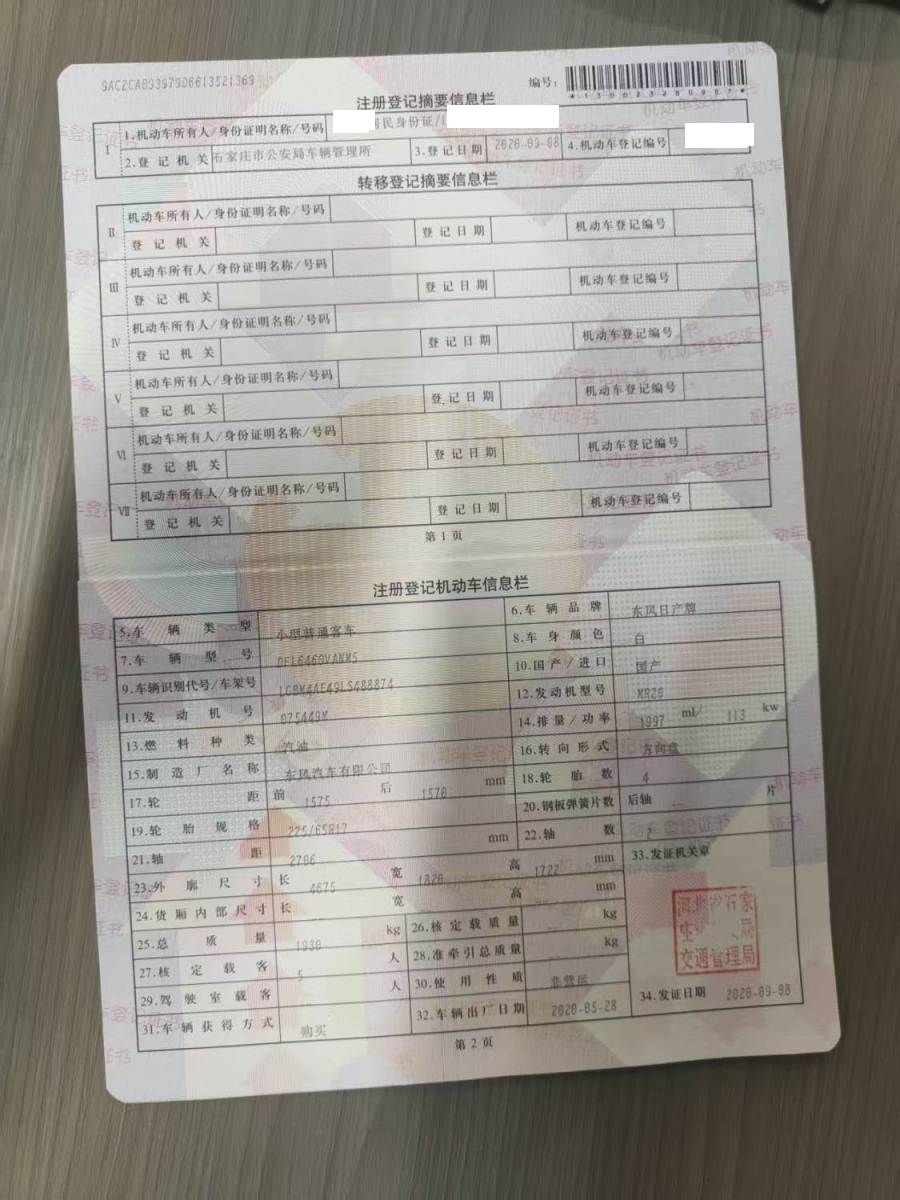 9AC2CA8939790661352136​9
编号：
*130023280907*
注册登记摘要信息栏
Ⅰ 1.机动车所有人/身份证明名称/号码 居民身份证/
2.登记机关 石家庄市公安局车辆管理所 3.登记日期 2020-09-08 4.机动车登记编号
转移登记摘要信息栏
Ⅱ 机动车所有人/身份证明名称/号码
登记机关 登记日期 机动车登记编号
Ⅲ 机动车所有人/身份证明名称/号码
登记机关 登记日期 机动车登记编号
Ⅳ 机动车所有人/身份证明名称/号码
登记机关 登记日期 机动车登记编号
Ⅴ 机动车所有人/身份证明名称/号码
登记机关 登记日期 机动车登记编号
Ⅵ 机动车所有人/身份证明名称/号码
登记机关 登记日期 机动车登记编号
Ⅶ 机动车所有人/身份证明名称/号码
登记机关 登记日期 机动车登记编号
第1页
注册登记机动车信息栏
5.车辆类型 小型普通客车 6.车辆品牌 东风日产牌
7.车辆型号 DFL6460VANM5 8.车身颜色 白
9.车辆识别代号/车架号 LGBM4AE49LS488874 10.国产/进口 国产
11.发动机号 075449M 12.发动机型号 MR20
13.燃料种类 汽油 14.排量/功率 1997 ml/ 113 kw
15.制造厂名称 东风汽车有限公司 16.转向形式 方向盘
17.轮距 前 1575 后 1570 mm 18.轮胎数 4
19.轮胎规格 225/65R17 20.钢板弹簧片数 后轴 片
21.轴距 2706 mm 22.轴数 2
23.外廓尺寸 长 4675 宽 1820 高 1722 mm 33.发证机关章
24.货厢内部尺寸 长 宽 高 mm
25.总质量 1930 kg 26.核定载质量 kg
27.核定载客 5 人 28.准牵引总质量 kg
29.驾驶室载客 人 30.使用性质 非营运
31.车辆获得方式 购买 32.车辆出厂日期 2020-05-28 34.发证日期 2020-09-08
河北省石家
交通管理局
第2页